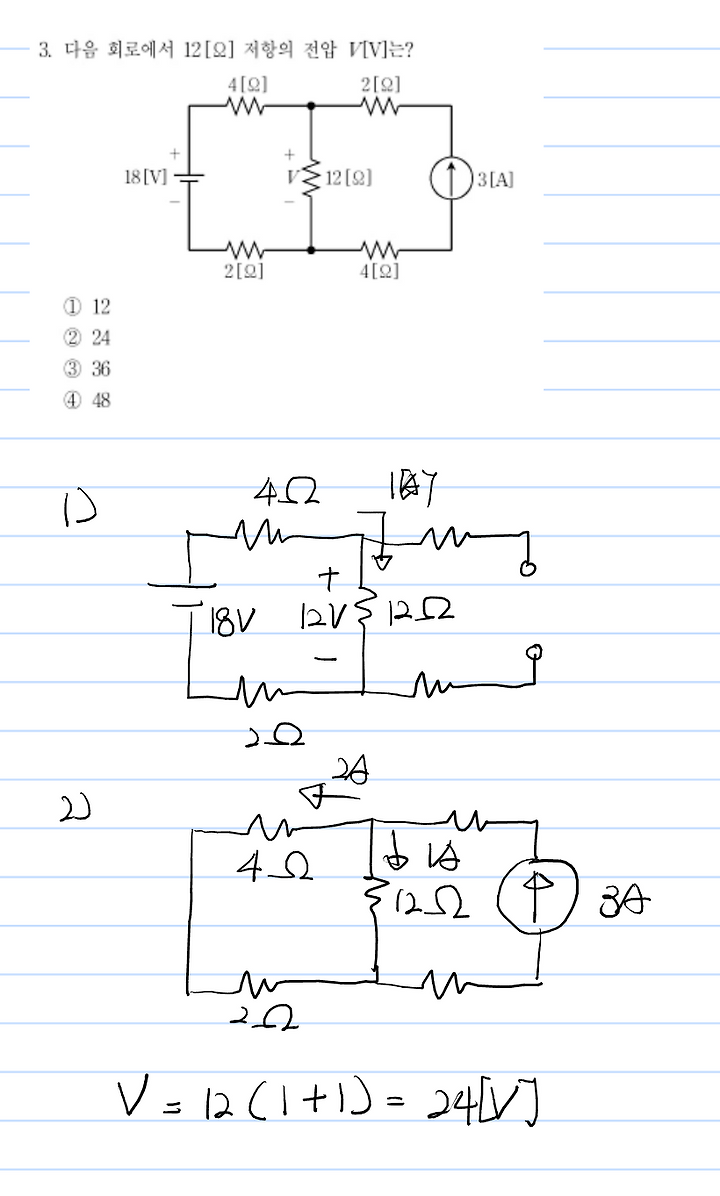 3. 다음 회로에서 12[Ω] 저항의 전압 V[V]는?
4[Ω] 2[Ω]
+ +
18[V] V 12[Ω] 3[A]
- -
2[Ω] 4[Ω]
① 12
② 24
③ 36
④ 48
1)
4Ω
+
18V 12V 12Ω
-
2Ω
2)
2A
4Ω 1A
12Ω 3A
2Ω
V = 12(1+1) = 24[V]